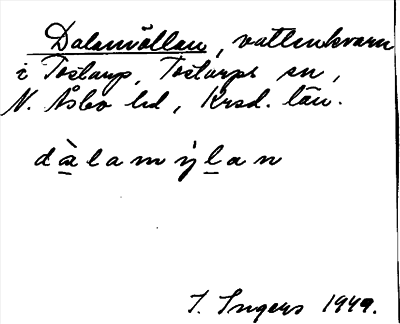 Dalamöllan, vattenkvarn
i Tostarp, Tostarps sn,
N. Åsbo hd, Krsd. län.
dàlamỳlan
I. Ingers 1949.